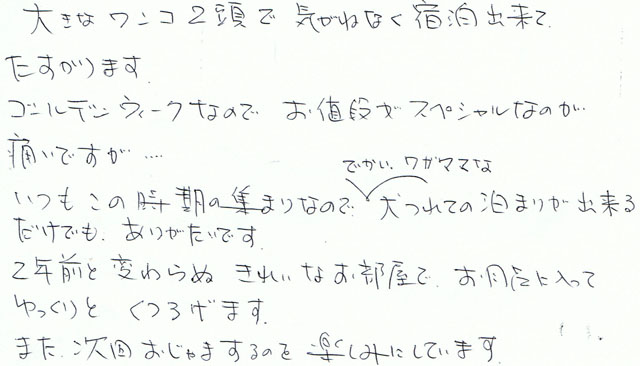 大きなワンコ2頭で気がねなく宿泊出来て、
たすかります。
ゴールデンウィークなので お値段がスペシャルなのが
痛いですが‥‥
でかい、ワガママな
いつもこの時期の集まりなので、犬つれての泊まりが出来る
だけでも、ありがたいです。
2年前と変わらぬ きれいなお部屋で、お風呂に入って
ゆっくりと くつろげます。
また、次回おじゃまするのを楽しみにしています。